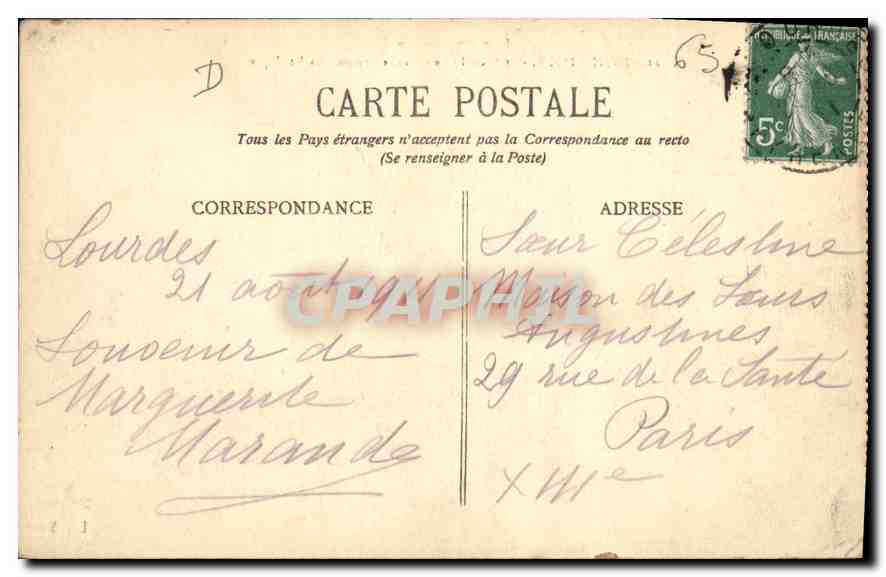 D
65
RÉPUBLIQUE FRANÇAISE
5c
POSTES
CARTE POSTALE
Tous les Pays étrangers n'acceptent pas la Correspondance au recto
(Se renseigner à la Poste)
CORRESPONDANCE
Lourdes
21 août 1911
Souvenir de
Marguerite
Marande
ADRESSE
Sœur Célestine
Maison des Sœurs
Augustines
29 rue de la Santé
Paris
XIIIe
CPAPHIL